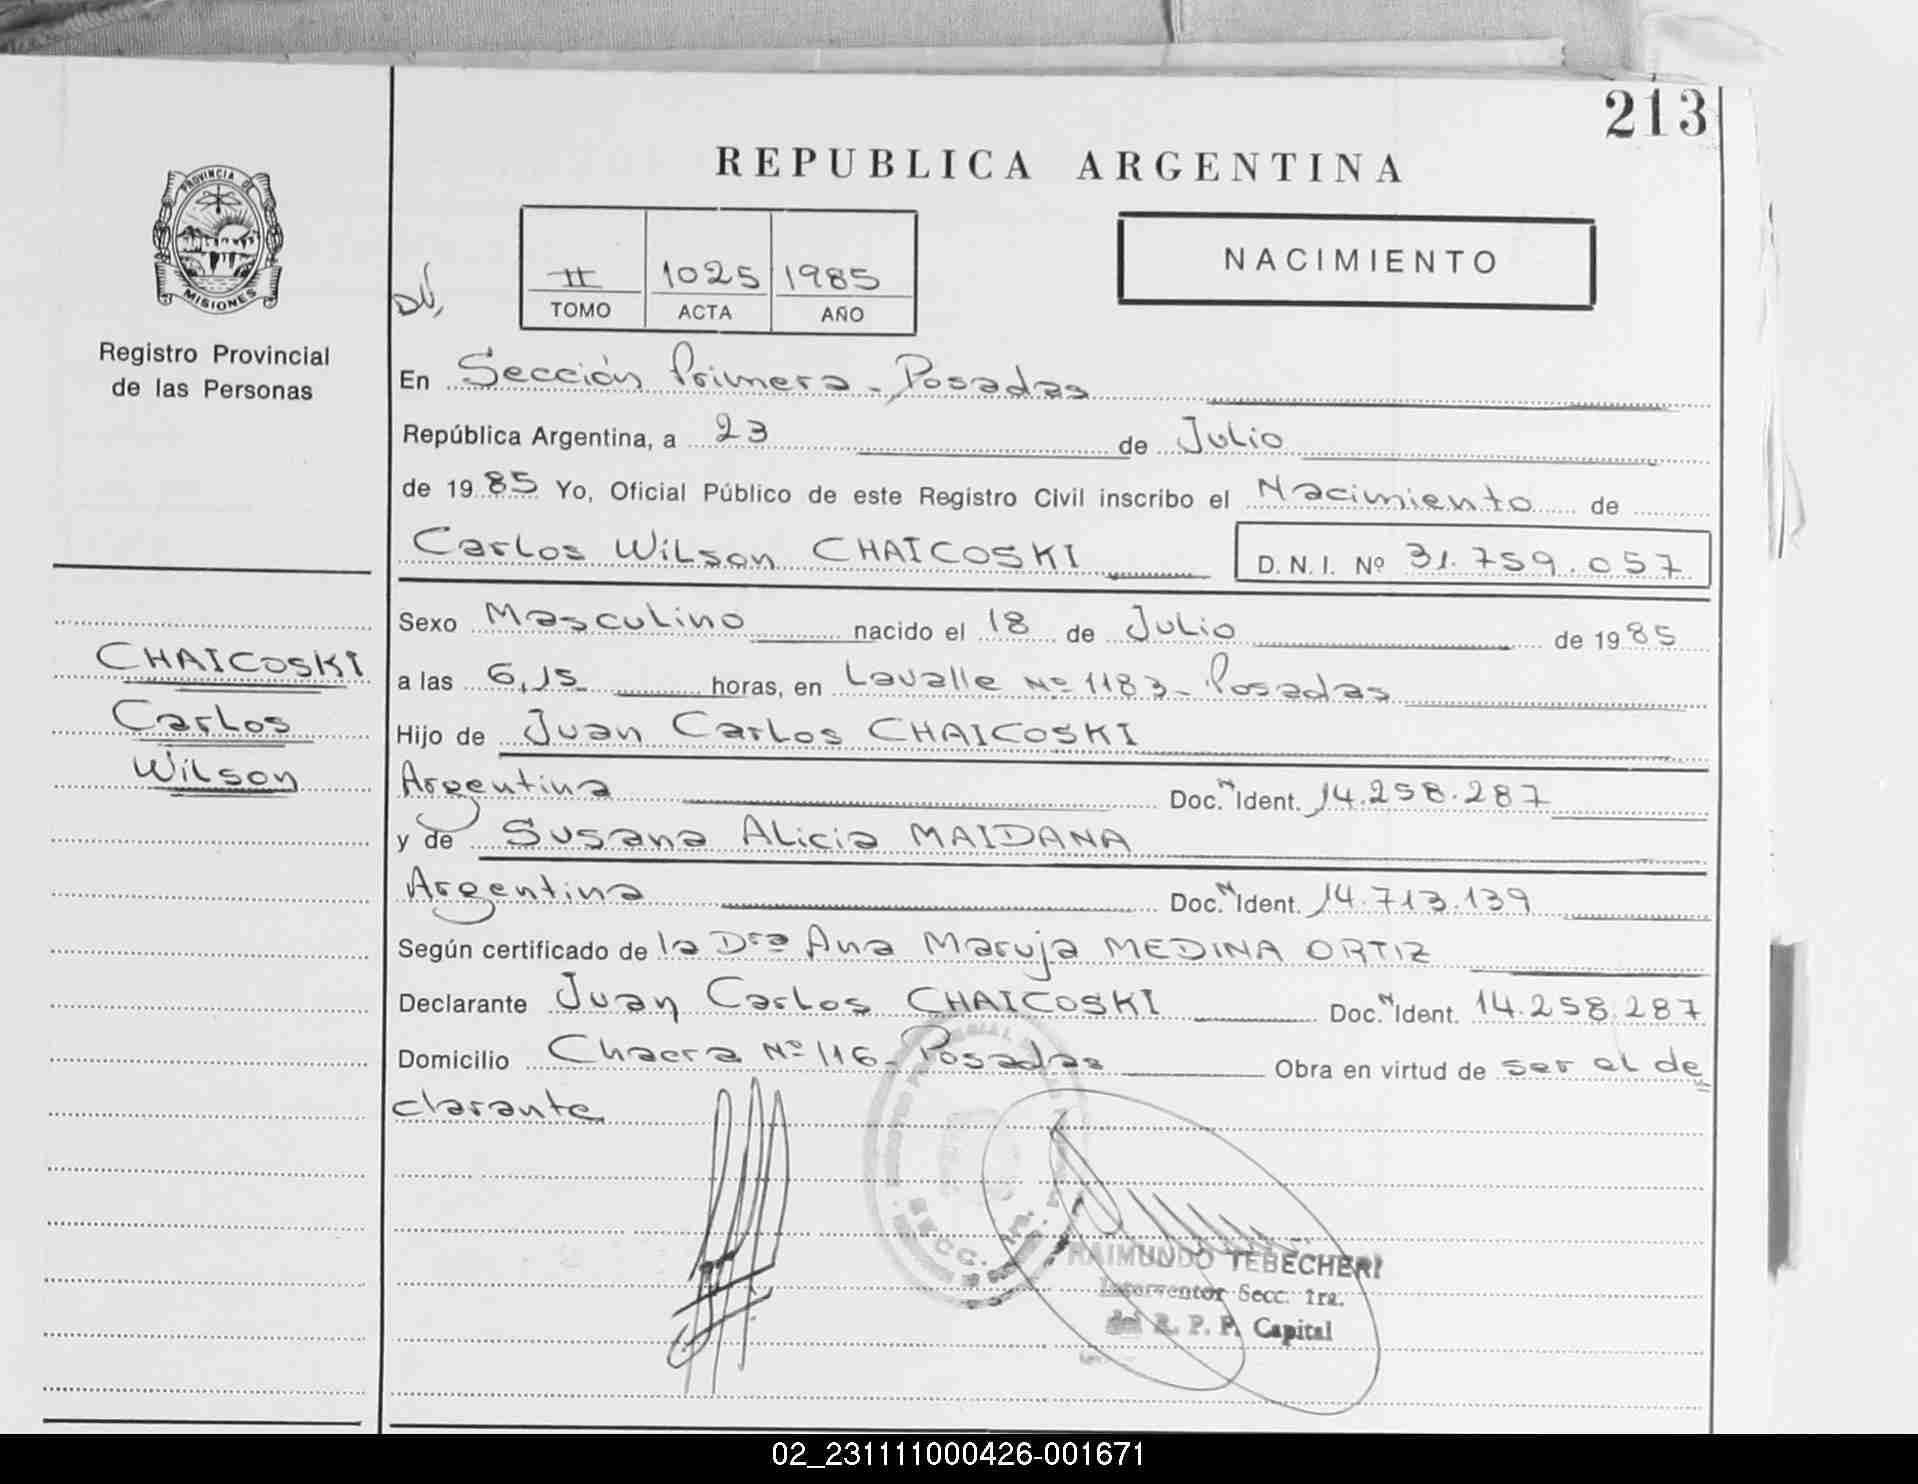 213
REPUBLICA ARGENTINA
PROVINCIA DE
MISIONES
Registro Provincial
de las Personas
II 1025 1985
TOMO ACTA AÑO
NACIMIENTO
En Sección Primera - Posadas
República Argentina, a 23 de Julio
de 1985 Yo, Oficial Público de este Registro Civil inscribo el Nacimiento de
Carlos Wilson CHAICOSKI D. N. I. Nº 31.759.057
Sexo Masculino nacido el 18 de Julio de 1985
CHAICOSKI
Carlos
Wilson
a las 6,15 horas, en Lavalle Nº 1183 - Posadas
Hijo de Juan Carlos CHAICOSKI
Argentina Doc. N Ident. 14.258.287
y de Susana Alicia MAIDANA
Argentina Doc. N Ident. 14.713.139
Según certificado de la Dra Ana Maruja MEDINA ORTIZ
Declarante Juan Carlos CHAICOSKI Doc. N Ident. 14.258.287
Domicilio Chacra Nº 116 - Posadas Obra en virtud de ser el de
clarante
SECC. 1ra.
RAIMUNDO TEBECHERI
Interventor Secc. 1ra.
del R. P. P. Capital
02_231111000426-001671